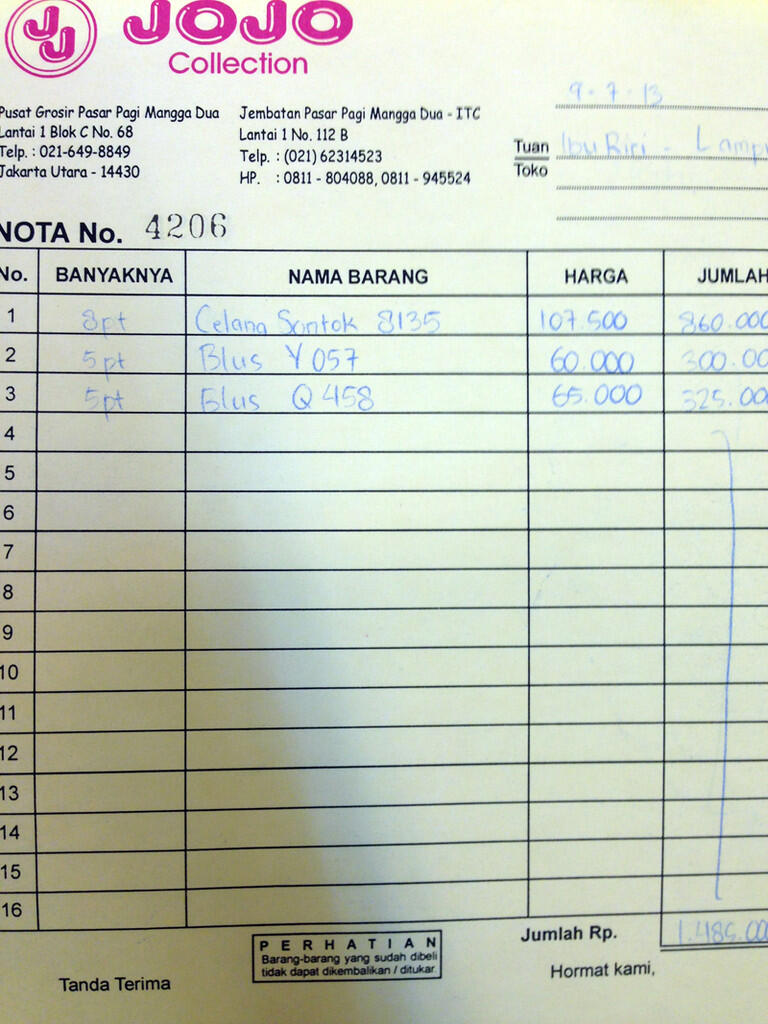 JJ JOJO
Collection
Pusat Grosir Pasar Pagi Mangga Dua
Lantai 1 Blok C No. 68
Telp. : 021-649-8849
Jakarta Utara - 14430
Jembatan Pasar Pagi Mangga Dua - ITC
Lantai 1 No. 112 B
Telp. : (021) 62314523
HP. : 0811 - 804088, 0811 - 945524
9-7-13
Tuan Ibu Riri - Lamp
Toko
NOTA No. 4206
No. BANYAKNYA NAMA BARANG HARGA JUMLAH
1 8pt Celana Sontok 8135 107.500 860.000
2 5pt Blus Y 057 60.000 300.00
3 5pt Blus Q 458 65.000 325.00
4
5
6
7
8
9
10
11
12
13
14
15
16
Jumlah Rp. 1.485.00
PERHATIAN
Barang-barang yang sudah dibeli
tidak dapat dikembalikan / ditukar.
Tanda Terima
Hormat kami,